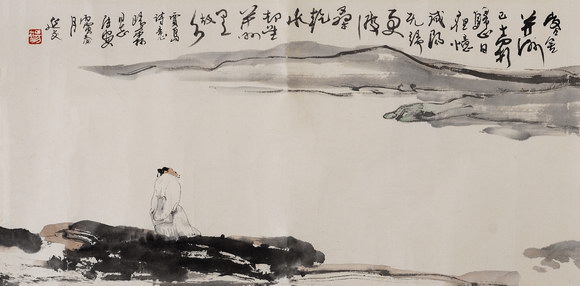 客舍
并州
已十霜
歸心日
夜憶
咸陽
无端
更
渡
桑
乾
水
却望
并州
是
故乡
賈島
诗意
丙寅
月